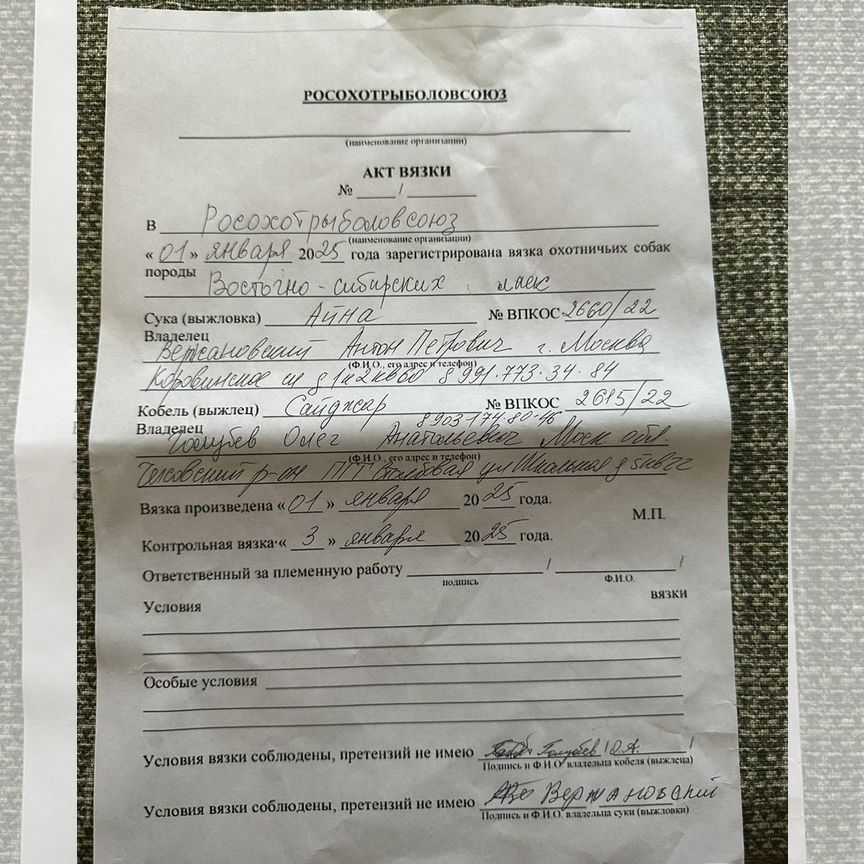 РОСОХОТРЫБОЛОВСОЮЗ
(наименование организации)
АКТ ВЯЗКИ
№ ____/________
В Росохотрыболовсоюз
(наименование организации)
« 01 » января 2025 года зарегистрирована вязка охотничьих собак
породы Восточно-сибирских лаек
Сука (выжловка) Айна № ВПКОС 2660/22
Владелец
Антон Петрович г. Москва
(Ф.И.О., его адрес и телефон)
Коровинское ш д 1к2 кв60 8 991.773.34.84
Кобель (выжлец) Сайджар № ВПКОС 2615/22
8903-174-80-46
Владелец
Голубев Олег Анатольевич Моск обл.
(Ф.И.О., его адрес и телефон)
р-он ПГТ ул Школьная
Вязка произведена « 01 » января 2025 года.
М.П.
Контрольная вязка « 3 » января 2025 года.
Ответственный за племенную работу ________ / ________ /
подпись Ф.И.О.
Условия вязки
Особые условия
Условия вязки соблюдены, претензий не имею Голубев /О.А. /
Подпись и Ф.И.О. владельца кобеля (выжлеца)
Условия вязки соблюдены, претензий не имею Вержановский
Подпись и Ф.И.О. владельца суки (выжловки)